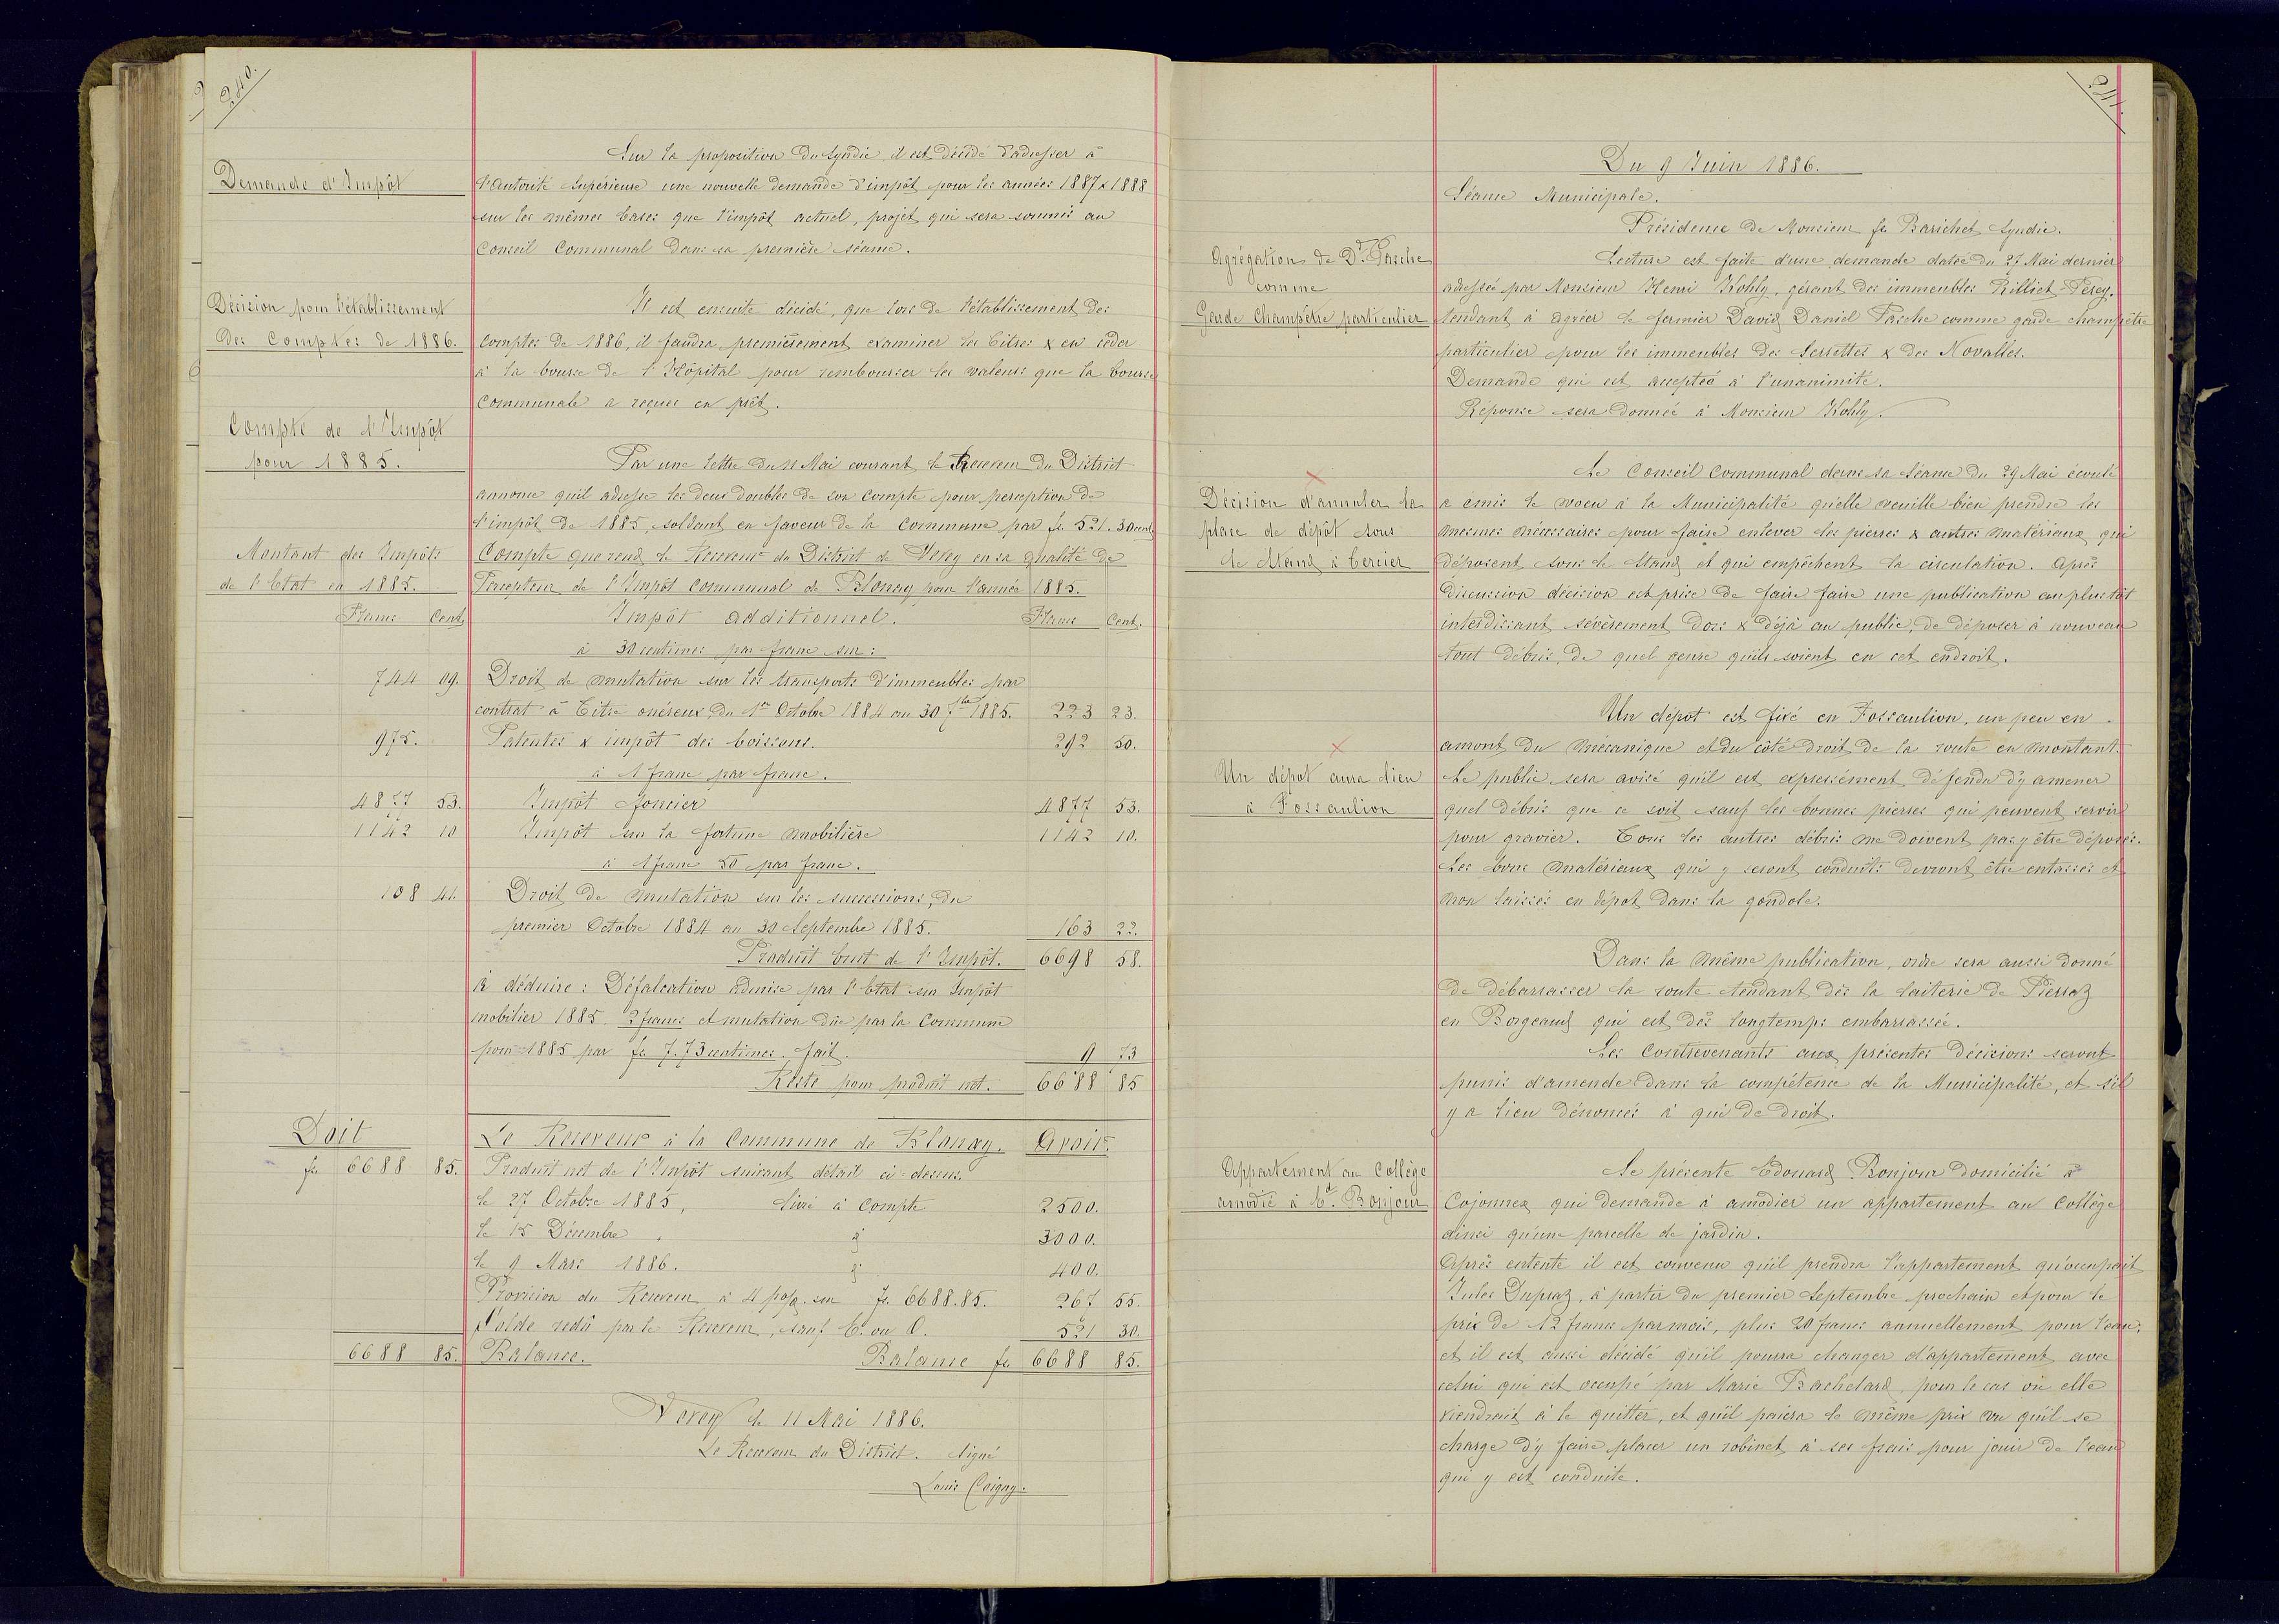 240.
Sur la proposition du Syndic, il est décidé d'adresser à
Demande d'Impôt
l'autorité supérieure une nouvelle demande d'impôt pour les années 1887 & 1888
sur les mêmes bases que l'impôt actuel, projet qui sera soumis au
Conseil Communal dans sa première séance.
Décision pour l'établissement
des Comptes de 1886.
Il est ensuite décidé, que lors de l'établissement des
comptes de 1886, il faudra premièrement examiner les titres & en céder
à la bourse de l'Hôpital pour rembourser les valeurs que la bourse
Communale a reçues en prêt.
Compte de l'Impôt
pour 1885.
Par une lettre du 11 Mai courant le Receveur du District
annonce qu'il adresse les deux doubles de son compte pour perception de
l'impôt de 1885, soldant en faveur de la Commune par fr. 521. 30 cent.
Montant des Impôts
de l'Etat en 1885.
Compte que rend le Receveur du District de Vevey en sa qualité de
Percepteur de l'Impôt Communal de Blonay pour l'année 1885.
Francs Cent. Impôt additionnel. Francs Cent.
à 30 centimes par franc sur :
744 09. Droit de mutation sur les transports d'immeubles par
contrat à titre onéreux, du 1er Octobre 1884 au 30 7bre 1885. 223 23.
975. Patentes & impôt des boissons. 292 50.
à 1 franc par franc.
4877 53. Impôt foncier 4877 53.
1142 10 Impôt sur la fortune mobilière 1142 10.
à 1 franc 50 par franc.
108 41. Droit de mutation sur les successions, du
premier Octobre 1884 au 30 Septembre 1885. 163 22.
Produit brut de l'Impôt. 6698 58.
à déduire : Défalcation admise par l'Etat sur Impôt
mobilier 1885. 2 francs et mutation dûe par la Commune
pour 1885 par fr 7.73 centimes. fait. 9 73
Reste pour produit net. 6688 85
Doit Le Receveur à la Commune de Blonay. Avoir.
fr 6688 85. Produit net de l'Impôt suivant détail ci-dessus.
le 27 Octobre 1885, livré à Compte 2500.
le 15 Décembre " 3000.
le 9 Mars 1886. 400.
Provision du Receveur à 4 po/o. sur fr. 6688.85. 267 55.
Solde redû par le Receveur, sauf E. ou O. 521 30.
6688 85. Balance. Balance fr 6688 85.
Vevey le 11 Mai 1886.
Le Receveur du District. signé
Louis
241.
Du 9 Juin 1886.
Séance Municipale.
Présidence de Monsieur fs Barichet Syndic.
Agrégation de Dd. Dl. Pasche
comme
Garde Champêtre particulier
Lecture est faite d'une demande datée du 27 Mai dernier
adressée par Monsieur Henri Kohly, gérant des immeubles Rilliet-Perey.
tendant à agréer le fermier David Daniel Pasche comme garde champêtre
particulier pour les immeubles des Serrettes & des Novalles.
Demande qui est acceptée à l'unanimité.
Réponse sera donnée à Monsieur Kohly.
Décision d'annuler la
place de dépôt sous
le Stand à Cercier
Le Conseil Communal dans sa séance du 29 Mai écoulé
a émis le voeu à la Municipalité qu'elle veuille bien prendre les
mesures nécessaires pour faire enlever les pierres & autres matériaux qui
déposent sous le stand et qui empêchent la circulation. Après
discussion décision est prise de faire faire une publication au plus tôt
interdissant sevèrement dors & déjà au public, de déposer à nouveau
tout débris de quel genre qu'ils soient en cet endroit.
Un dépôt aura lieu
à Fossaulion
Un dépot est fixé en Fossaulion, un peu en
amont du mécanique et du côté droit de la route en montant.
Le public sera avisé qu'il est expressément défendu d'y amener
quel débris que ce soit sauf les bonnes pierres qui peuvent servir
pour gravier. Tous les autres débris ne doivent pas y être déposés.
Les bons matériaux qui y seront conduits devront être entassés et
non laissés en dépot dans la gondole.
Dans la même publication, ordre sera aussi donné
de débarrasser la route tendant dès la laiterie de Pierraz
en Borgeaud qui est dès longtemps embarrassée.
Les contrevenants aux présentes décisions seront
punis d'amende dans la compétence de la Municipalité, et s'il
y a lieu dénoncés à qui de droit.
Appartement au Collège
amodié à Ed. Bonjour
Se présente Edouard Bonjour domicilié à
Cojonnex qui demande à amodier un appartement au Collège
ainsi qu'une parcelle de jardin.
Après entente il est convenu qu'il prendra l'appartement qu'occupait
Jules Dupraz, à partir du premier Septembre prochain et pour le
prix de 12 francs par mois, plus 20 francs annuellement pour l'eau;
et il est aussi décidé qu'il pourra changer d'appartement avec
celui qui est occupé par Marie Bachelard, pour le cas où elle
viendrait à le quitter, et qu'il paiera le même prix vu qu'il se
charge d'y faire placer un robinet à ses frais pour jouir de l'eau
qui y est conduite.